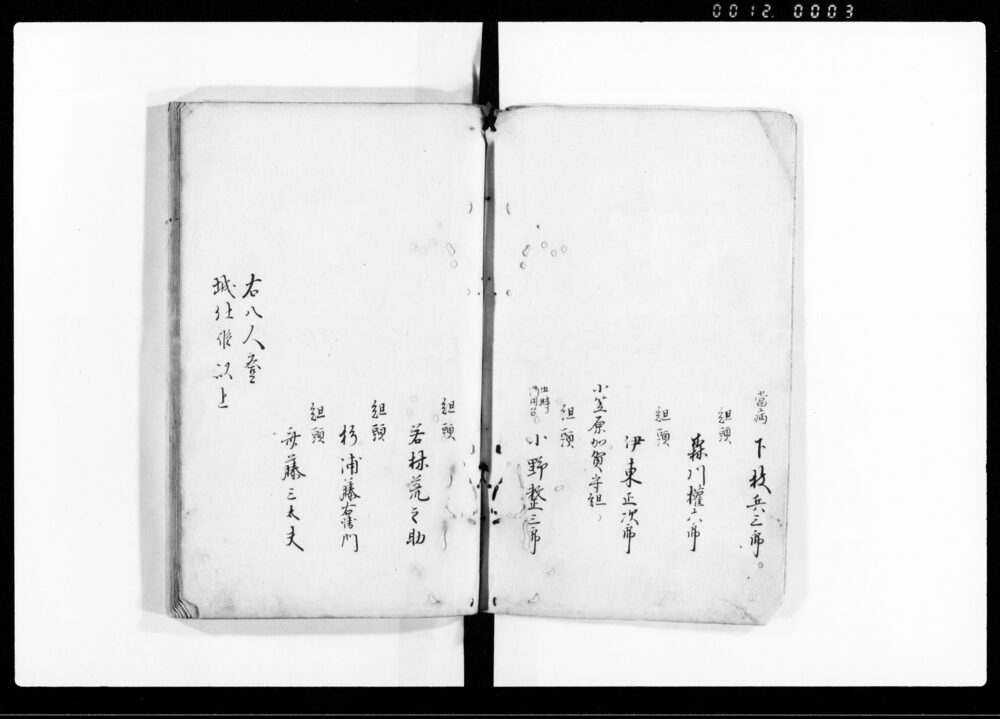 0012. 0003
當病 下枝兵三郎。
組頭
森川權六郎
組頭
伊東正次郎
小笠原加賀守組、
組頭
出時
御用召。小野整三郎
組頭
若林荒之助
組頭
杉浦藤右衛門
組頭
斉藤三太夫
右八人
以上